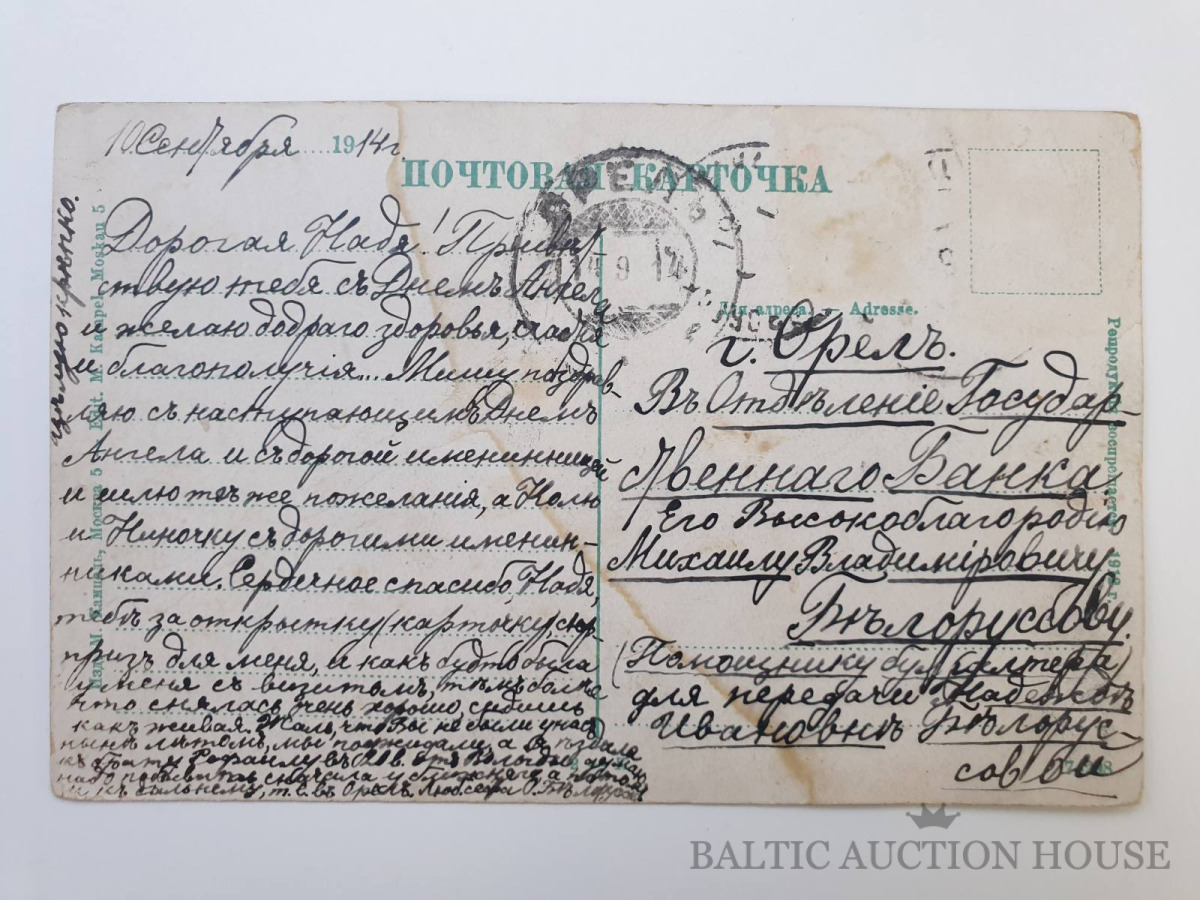 10 Сентября 1914 г.
ПОЧТОВАЯ КАРТОЧКА
ОРЕЛЪ
14 9 14
Для адреса. — Adresse.
Дорогая Надя! Привѣт
ствую тебя съ Днемъ Ангела
и желаю добраго здоровья, счастья
и благополучія... Мишу поздрав-
ляю съ наступающимъ Днемъ
Ангела и съ дорогой именинницей
и шлю тѣ же пожеланія, а Колю
и Ниночку съ дорогими именин-
никами. Сердечное спасибо, Надя,
тебѣ за открытку (карточку) сюр-
призъ для меня, и какъ будто была
у меня съ визитомъ, тѣмъ болѣе
что снялась очень хорошо, сидишь
какъ живая. Жаль, что Вы не были у нас
нынѣ лѣтомъ, мы поджидали, а я ѣздила
къ брату Рафаилу въ 20 в. отъ Вологды, думаю
надо побывать сначала у ближняго, а потомъ
и къ дальнему, т. е. въ Орелъ. Люб.
цѣлую крѣпко.
Издан. М. Кампель, Москва 5 Edit. M. Kampel, Moskau 5
г. Орелъ.
Въ Отдѣленіе Государ-
ственнаго Банка
Его Высокоблагородію
Михаилу Владиміровичу
Бѣлоруссову.
(Помощнику бухгалтера)
для передачи Надеждѣ
Ивановнѣ Бѣлорус-
совой
BALTIC AUCTION HOUSE